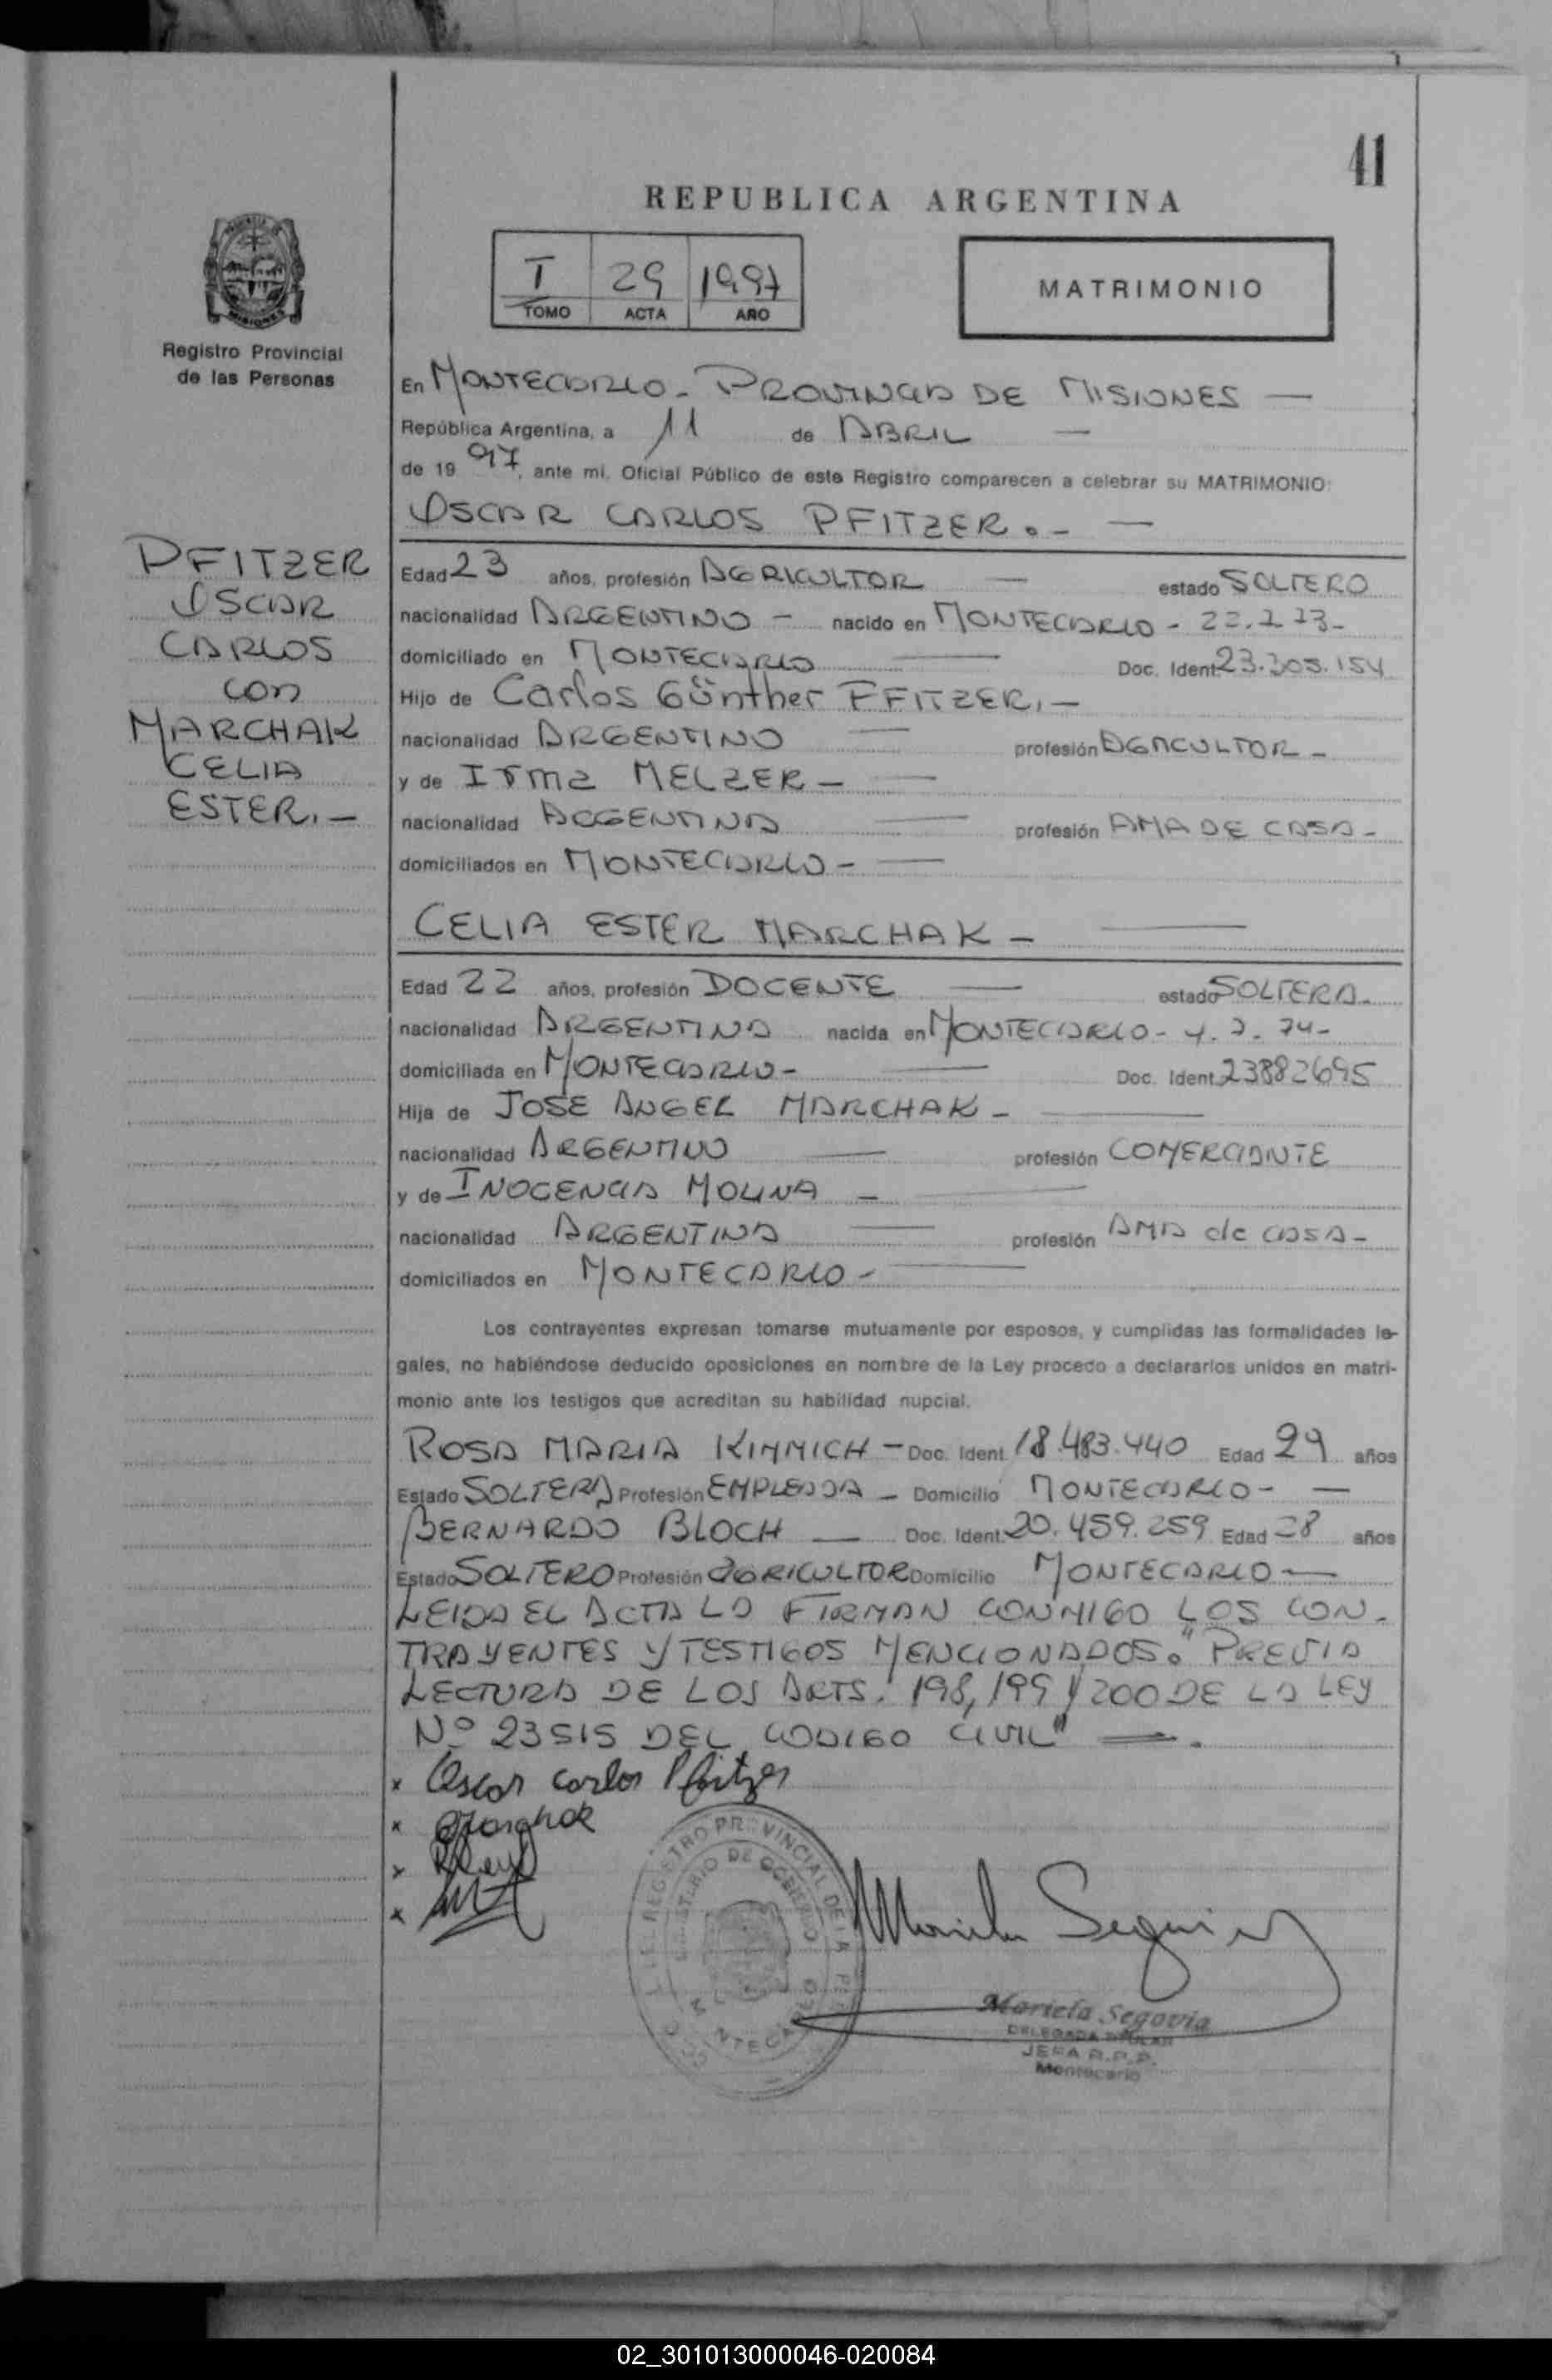 41
REPUBLICA ARGENTINA
I 29 1997
TOMO ACTA AÑO
MATRIMONIO
MISIONES
Registro Provincial
de las Personas
En MONTECARLO - PROVINCIA DE MISIONES —
República Argentina, a 11 de ABRIL —
de 1997, ante mí, Oficial Público de este Registro comparecen a celebrar su MATRIMONIO:
OSCAR CARLOS PFITZER.- —
PFITZER
OSCAR
CARLOS
con
MARCHAK
CELIA
ESTER.-
Edad 23 años, profesión AGRICULTOR — estado SOLTERO
nacionalidad ARGENTINO - nacido en MONTECARLO -
domiciliado en MONTECARLO — Doc. Ident. 23.305.154
Hijo de Carlos Günther PFITZER.-
nacionalidad ARGENTINO — profesión AGRICULTOR -
y de Irma MELZER - —
nacionalidad ARGENTINA — profesión AMA DE CASA -
domiciliados en MONTECARLO - —
CELIA ESTER MARCHAK - —
Edad 22 años, profesión DOCENTE — estado SOLTERA.
nacionalidad ARGENTINA nacida en MONTECARLO -
domiciliada en MONTECARLO - — Doc. Ident. 23882695
Hija de JOSE ANGEL MARCHAK - —
nacionalidad ARGENTINO — profesión COMERCIANTE
y de INOCENCIA MOLINA - —
nacionalidad ARGENTINA — profesión AMA de CASA -
domiciliados en MONTECARLO - —
Los contrayentes expresan tomarse mutuamente por esposos, y cumplidas las formalidades le-
gales, no habiéndose deducido oposiciones en nombre de la Ley procedo a declararlos unidos en matri-
monio ante los testigos que acreditan su habilidad nupcial.
ROSA MARIA KIMMICH - Doc. Ident. 18.483.440 Edad 29 años
Estado SOLTERA Profesión EMPLEADA - Domicilio MONTECARLO - —
BERNARDO BLOCH — Doc. Ident. 20.459.259 Edad 28 años
Estado SOLTERO Profesión AGRICULTOR Domicilio MONTECARLO —
LEIDA EL ACTA LA FIRMAN CONMIGO LOS CON-
TRAYENTES Y TESTIGOS MENCIONADOS. "PREVIA
LECTURA DE LOS ARTS. 198, 199 Y 200 DE LA LEY
Nº 23515 DEL CODIGO CIVIL" —.
x Oscar Carlos Pfitzer
x
x
x
REGISTRO PROVINCIAL DE LA
MINISTERIO DE GOBIERNO
MONTECARLO
Mariela Segovia
DELEGADA TITULAR
JEFA R.P.P.
Montecarlo
02_301013000046-020084